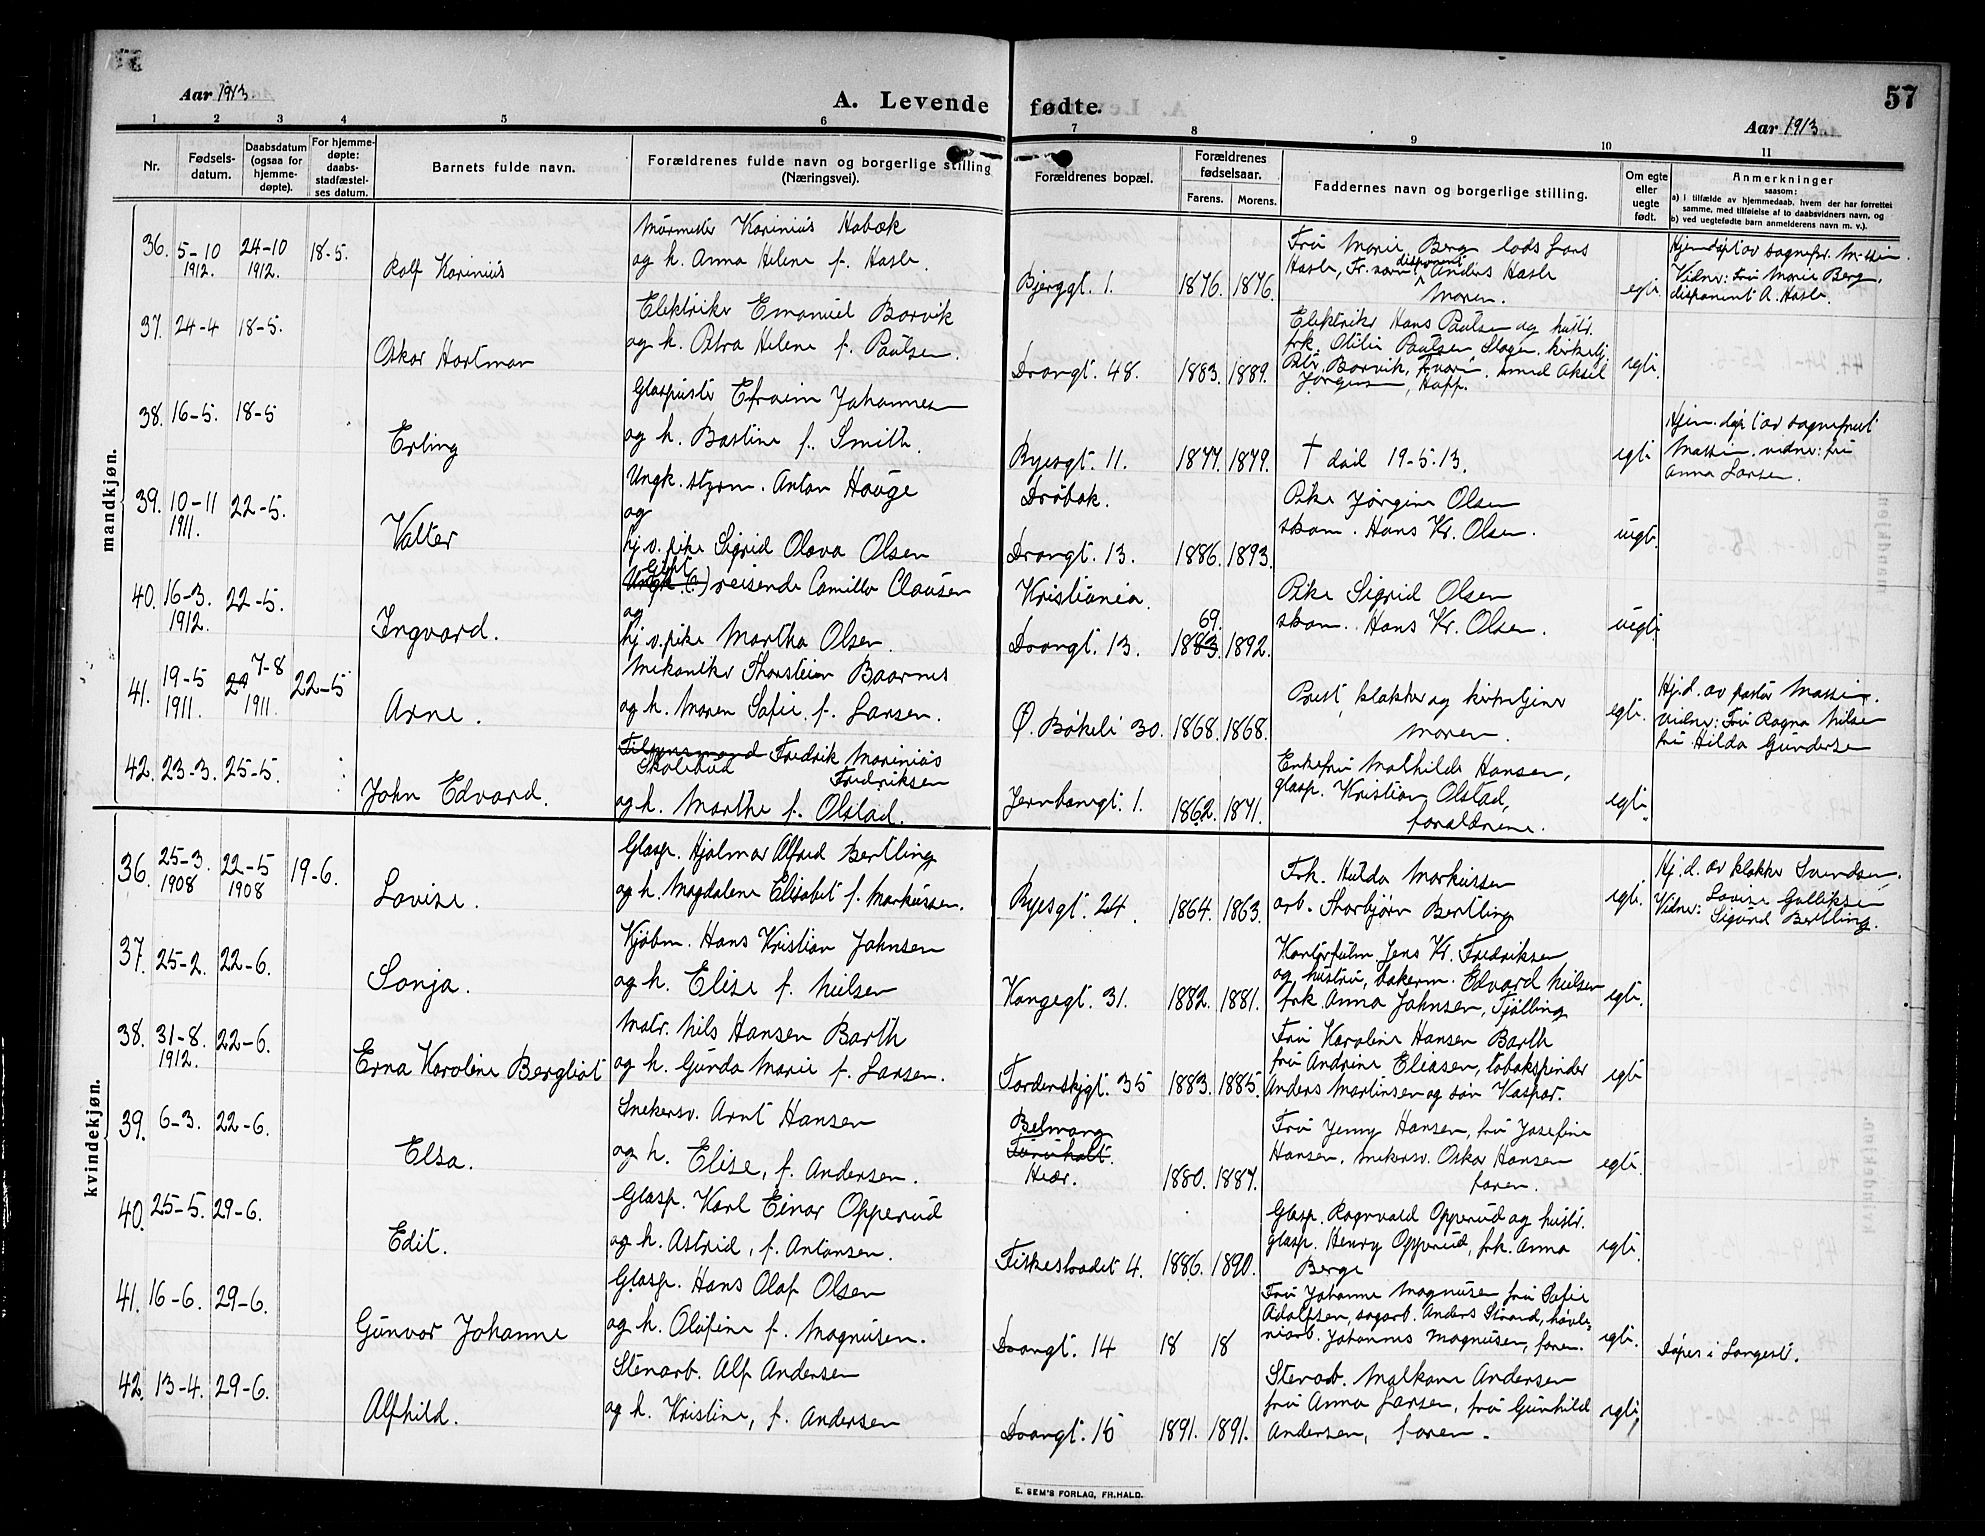 57
Aar 1913
A. Levende fødte.
Aar 1913
1 2 3 4 5 6 7 8 9 10 11
Nr.
Fødsels-
datum.
Daabsdatum
(ogsaa for
hjemme-
døpte).
For hjemme-
døpte:
daabs-
stadfæstel-
ses datum.
Barnets fulde navn.
Forældrenes fulde navn og borgerlige stilling
(Næringsvei).
Forældrenes bopæl.
Forældrenes
fødselsaar.
Farens. Morens.
Faddernes navn og borgerlige stilling.
Om egte
eller
uegte
født.
Anmerkninger
saasom:
a) i tilfælde av hjemmedaab, hvem der har forrettet
samme, med tilføielse af to daabsvidners navn, og
b) ved uegtefødte barn anmelderens navn m. v.).
mandkjøn.
36. 5-10 1912. 24-10 1912. 18-5.
Rolf Karinius
Murmester Karinius Habæk
og h. Anna Helene f. Hasle.
Bjerggt. 1. 1876. 1876.
Fru Marie Berg, lods Lars
Hasle, disponent Anders Hasle
Moren.
egte.
Hjemdøpt av sognepr.
Vidner: Fru Marie Berg,
disponent A. Hasle.
37. 24-4 18-5.
Oskar Hartman
Elektriker Emanuel Borvik
og h. Petra Helene f. Paulsen.
Drangt. 48. 1883. 1889.
Elektriker Hans Paulsen og hustr.
frk. Otilie Paulsen, Slagen, kirketj.
Petr. Borvik, smed Aksel
Jørgensen,
egte.
38. 16-5. 18-5
Erling
Glaspuster Efraim Johannesen
og h. Bastine f. Smith.
Byesgt. 11. 1877. 1879.
† død 19-5.13.
egte
Hjem. døpt av sogneprest
vidner: fru
Anna Larsen.
39. 10-11 1911. 22-5.
Valter
Ungk. styrm. Anton Hauge
og
hj. v. pike Sigrid Olava Olsen
Drøbak.
Drangt. 13. 1886. 1893.
Pike Jørgine Olsen
skom. Hans Kr. Olsen.
uegte.
40. 16-3. 1912. 22-5.
Ingvard.
Gift reisende Camillo Clausen
og
hj. v. pike Martha Olsen.
Kristiania.
Drangt. 13. 69. 1883. 1892.
Pike Sigrid Olsen
skom. Hans Kr. Olsen.
uegte.
41. 19-5 1911. 29 7-8 1911. 22-5
Arne.
Mekaniker Thorstein Baarnes
og h. Maren Sofie, f. Larsen.
Ø. Bøkeli 30. 1868. 1868.
Prest, klokker og kirketjener
Moren.
egte.
Hj. d. av pastor
Vidner: Fru Ragna Nilsen
fru Hilda Gundersen
42. 23-3. 25-5.
John Edvard.
Skolebud Fredrik Marinius
Fredriksen
og h. Marthe f. Olstad.
Jernbanegt. 1. 1862. 1871.
Enkefru Mathilde Hansen,
glasp. Kristian Olstad,
forældrene.
egte.
kvindekjøn.
36. 25-3. 1908 22-5 1908 19-6.
Lovise.
Glasp. Hjalmar Alfred Bertling
og h. Magdalene Elisabet f. Markussen.
Byesgt. 24. 1864. 1863.
Frk. Hulda Markussen
arb. Thorbjørn Bertling
egte.
Hj. d. av klokker Svendsen.
Vidner: Lovise Gulliksen
Sigurd Bertling.
37. 25-2. 22-6.
Sonja.
Kjøbm. Hans Kristian Johnsen
og h. Elise f. Nielsen
Kongegt. 31. 1882. 1881.
Kontorfuldm. Jens Kr. Fredriksen
og hustru, bakerm. Edvard Nielsen
frk. Anna Johnsen, Tjølling
egte.
38. 31-8. 1912. 22-6.
Erna Karoline Bergliot
Matr. Nils Hansen Barth
og h. Gunda Marie f. Larsen.
Tordenskjgt. 35 1883. 1885.
Fru Karoline Hansen Barth
fru Andrine Eliasen, tobakspinder
Anders Martinsen og søn Kaspar.
egte
39. 6-3. 22-6.
Elsa.
Snekersv. Arnt Hansen
og h. Elise, f. Andersen.
Furuholt.
Hedr. 1880. 1887.
Fru Jenny Hansen, fru Josefine
Hansen, snekersv. Oskar Hansen
faren.
egte.
40. 25-5. 29-6.
Edit.
Glasp. Karl Einar Opperud
og h. Astrid, f. Antonsen.
Fiskestrædet 4. 1886. 1890.
Glasp. Ragnvald Opperud og hustr.
glasp. Henry Opperud, frk. Anna
Berge
egte.
41. 16-6. 29-6.
Gunvor Johanne
Glasp. Hans Olaf Olsen
og h. Olufine f. Magnusen.
Drangt. 14 18 18
Fru Johanne Magnusen fru Sofie
Adolfsen, sagarb. Anders Strand, høvle-
riarb. Johannes Magnusen, faren.
egte.
Døpes i Langest.
42. 13-4. 29-6.
Alfhild.
Stenarb. Alf Andersen
og h. Kristine, f. Andersen
Drangt. 15 1891. 1891.
Stenarb. Malkom Andersen
fru Anna Larsen, fru Gunhild
Andersen, faren.
egte.
E. SEM'S FORLAG, FR.HALD.